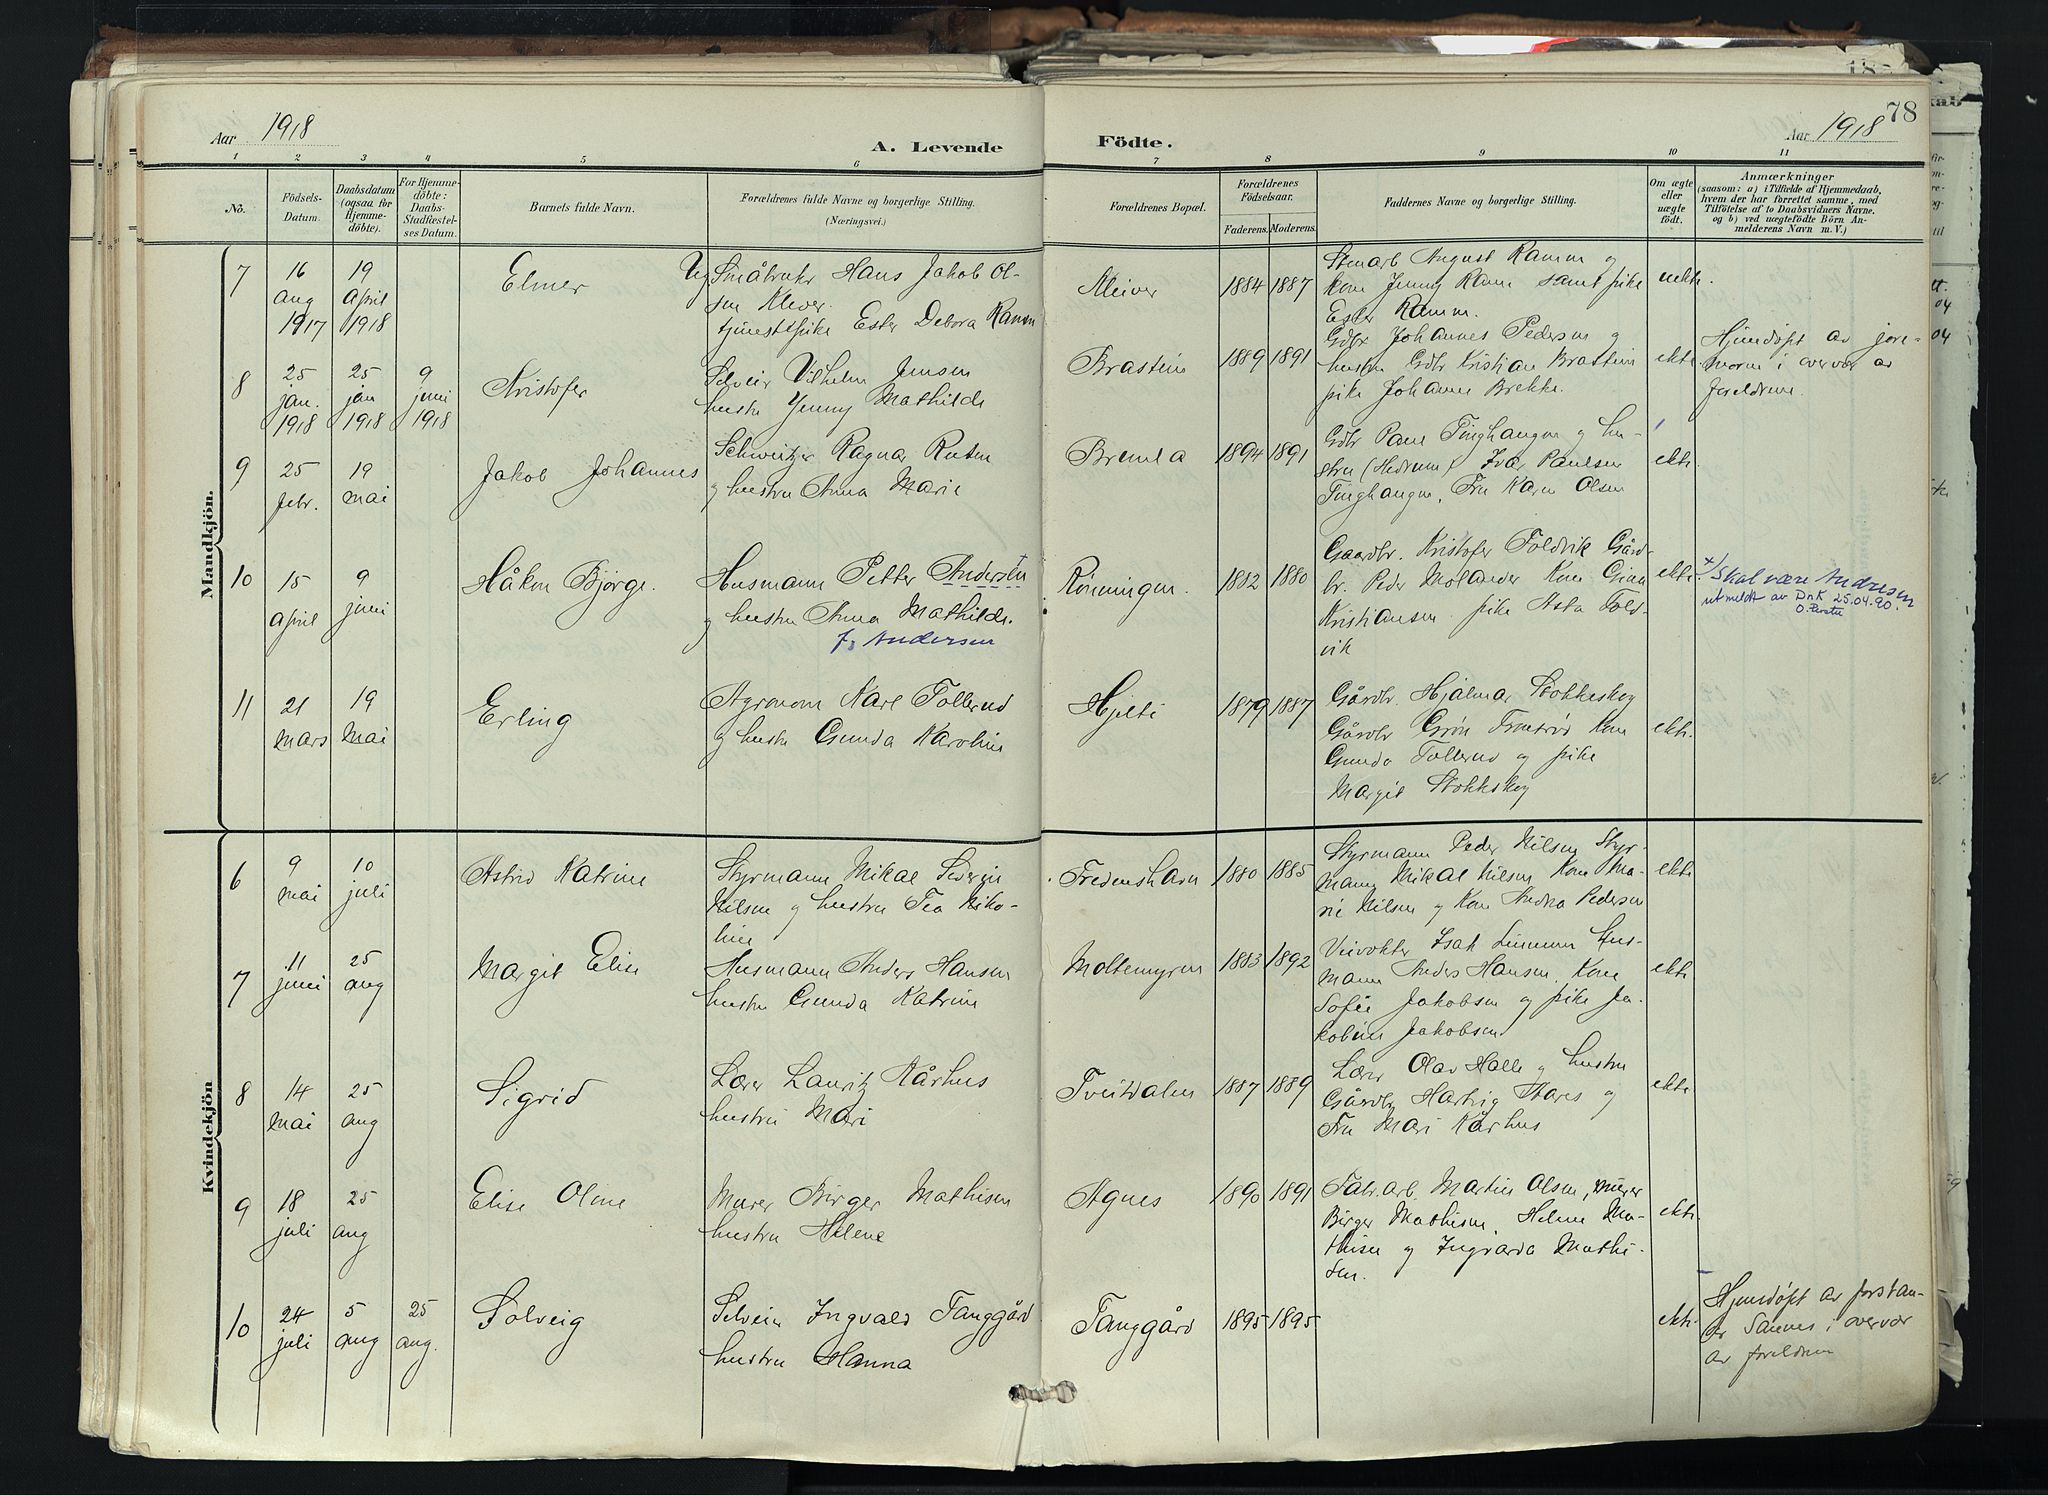 78
Aar 1918
A. Levende
Födte.
Aar 1918
1 2 3 4 5 6 7 8 9 10 11
No.
Födsels-
Datum.
Daabsdatum
(ogsaa for
Hjemme-
döbte).
For Hjemme-
döbte:
Daabs-
Stadfæstel-
ses Datum.
Barnets fulde Navn.
Forældrenes fulde Navne og borgerlige Stilling.
(Næringsvei.)
Forældrenes Bopæl.
Forældrenes
Födselsaar.
Faderens. Moderens.
Faddernes Navne og borgerlige Stilling.
Om ægte
eller
uægte
födt.
Anmærkninger
(saasom: a) i Tilfælde af Hjemmedaab,
hvem der har forrettet samme, med
Tilföielse af to Daabsvidners Navne,
og b) ved uægtefödte Börn An-
melderens Navn m. V.)
Mandkjön.
7
16
aug
1917
19
April
1918
Elmer
Ug Småbruker Hans Jakob Ol-
sen Kleiver.
tjenestepike Ester Debora Ramm
Kleiver
1884 1887
Stenarb August Ramm og
kone Jenny Ramm samt pike
Ester Ramm.
uekte.
8
25
jan.
1918
25
jan
1918
9
juni
1918
Kristofer
Selveier Vilhelm Jensen
hustru Jenny Mathilde
Brastein
1889 1891
Gdbr Johannes Pedersen og
hustru Gdbr Kristian Brastein
pike Johanne Brekke.
ekte
Hjemdøpt av jore-
moren i overvær av
foreldrene.
9
25
febr.
19
mai
Jakob Johannes
Schweitzer Ragnar
og hustru Anna Marie
Bremla
1894 1891
Gdbr Paul Tinghaugen og hu-
stru (Hedrum) Ivar Paulsen
Tinghaugen, Fru Karen Olsen
ekte.
10
15
April
9
juni
Håkon Bjørge.
Husmann Petter Andersen +
og hustru Anna Mathilde.
f. Andersen
Rønningen.
1882 1880
Gaardbr. Kristofer Foldvik Gård-
br. Peder Molander Kone
Kristiansen pike Asta Fold-
vik
ekte.
+/ Skal være Andresen
utmeldt av DnK 25.04.90.
11
21
Mars
19
Mai
Erling
Agronom Karl Tollerud
og hustru Gunda Karoline
Hjelte
1879 1887
Gårdbr. Hjalmar Stokkeskog
Gårdbr Kone
Gunda Tollerud og pike
Margit Stokkskog
ekte.
Kvindekjön
6
9
mai
10
juli
Astrid Katrine
Styrmann Mikal Severin
Nilsen og hustru Tea Niko-
line
Fredenshavn
1880 1885
Styrmann Peder Nilsen Styr-
mann Mikal Nilsen Kone Ma-
rie Nilsen og Kone Andrea Pedersen
ekte
7
11
juni
25
aug
Margit Elise
Husmann Anders Hansen
hustru Gunda Katrine
Moltemyren
1883 1892
Veivokter Isak Hus-
mann Anders Hansen, Kone
Sofie Jakobsen og pike Ja-
kobine Jakobsen
ekte
8
14
Mai
25
aug
Sigrid
Lærer Lauritz Kårhus
hustru Mari
Tveitdalen
1887 1889
Lærer Olav Halle og hustru
Gårdbr Hartvig Stares og
Fru Mari Kårhus
ekte
9
18
juli
25
aug
Elise Oline
Murer Birger Mathisen
hustru Helene
Agnes
1890 1891
Fabr.arb. Martin Olsen, Murer
Birger Mathisen, Helene Ma-
thisen og Ingvarda Mathi-
sen.
ekte.
10
24
juli
5
aug
25
aug.
Solveig
Selveier Ingvald Tanggård
hustru Hanna
Tanggård
1895 1895
ekte.
Hjemdøpt av forstan-
der Sannes i overvær
av foreldrene